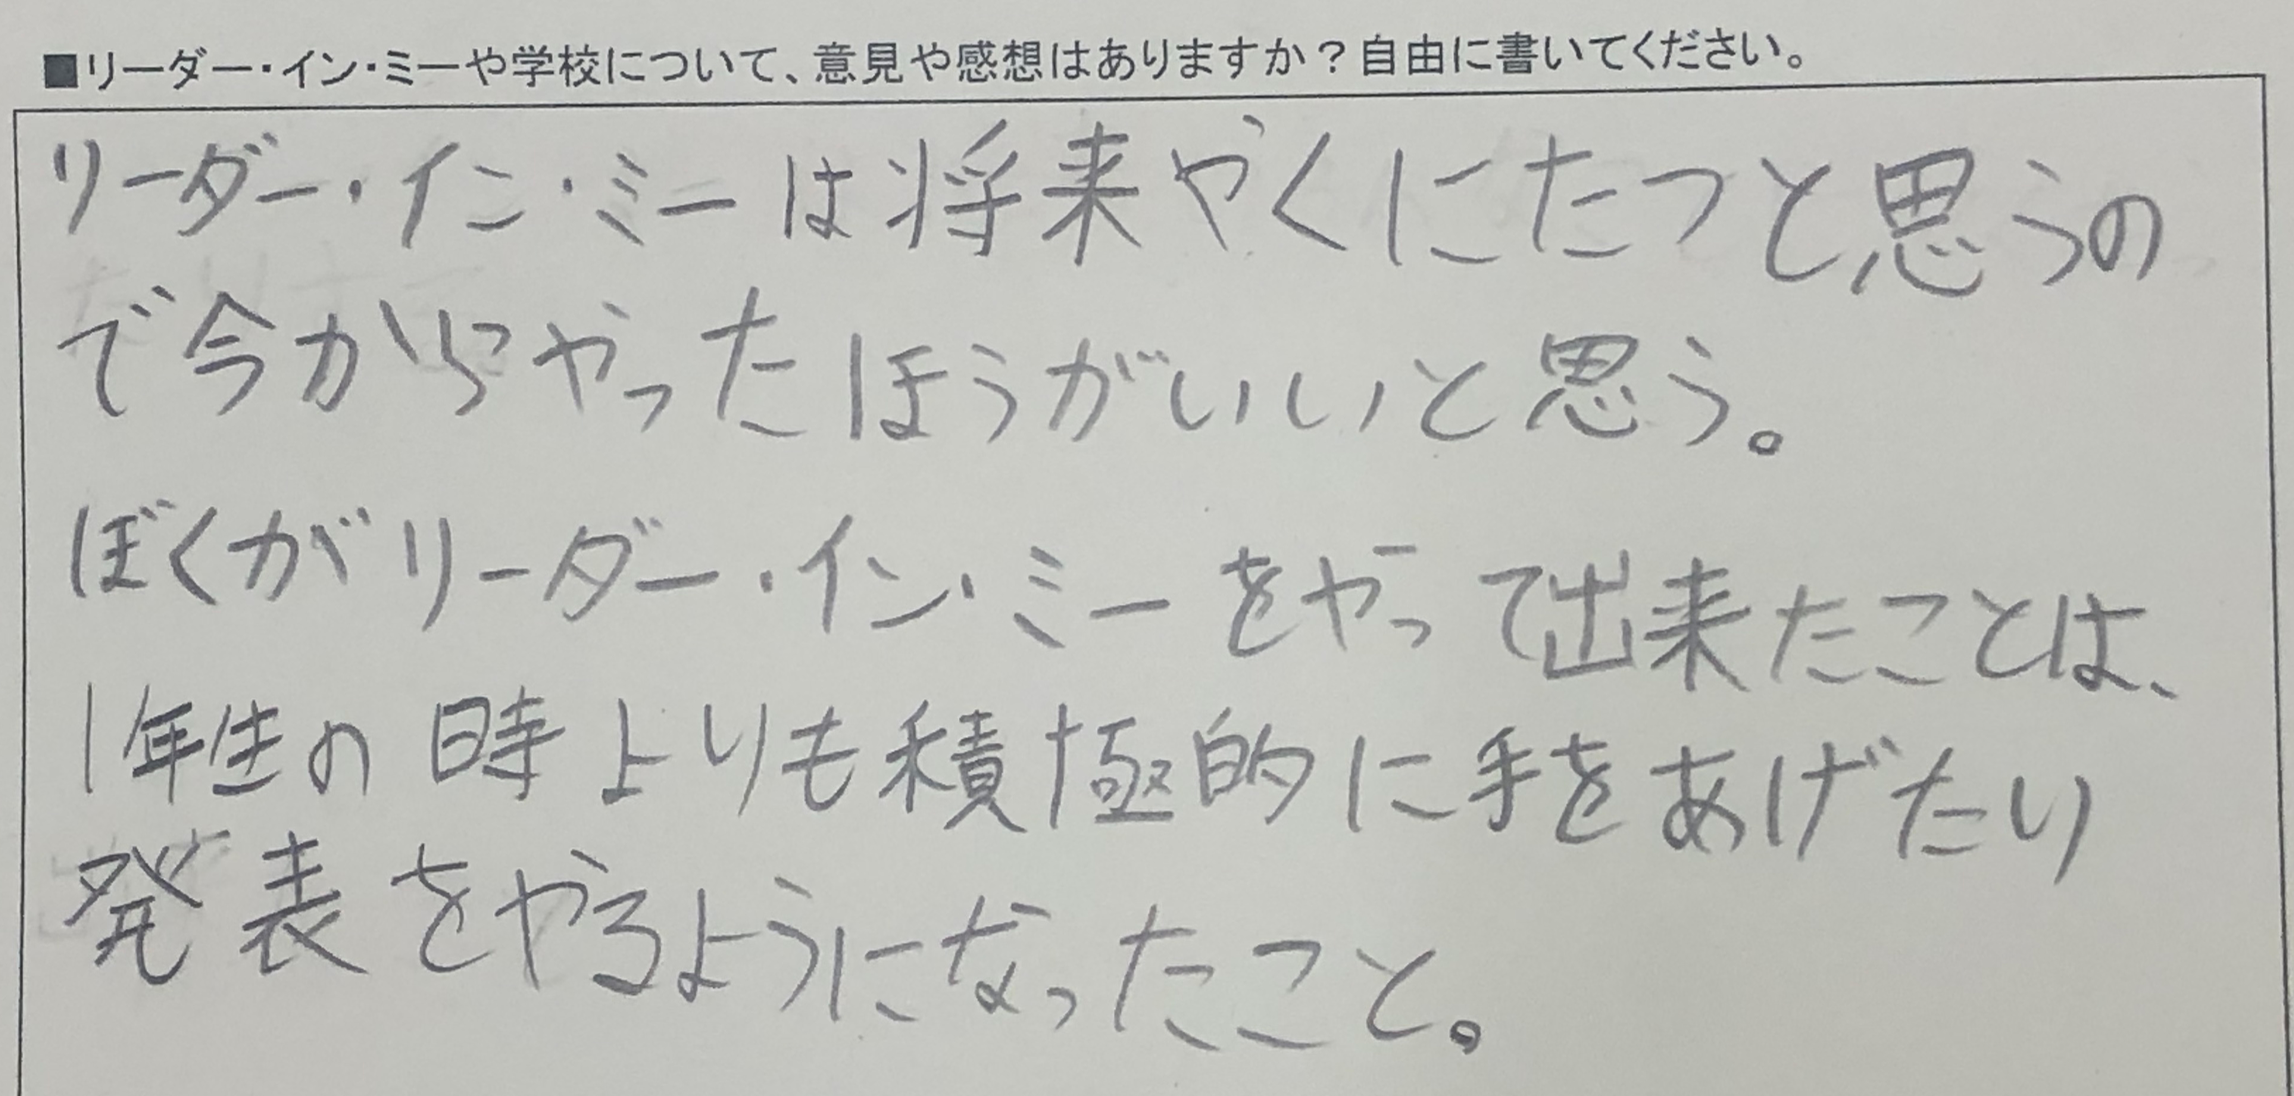 ■リーダー・イン・ミーや学校について、意見や感想はありますか？自由に書いてください。
リーダー・イン・ミーは将来やくにたつと思うの
で今からやったほうがいいと思う。
ぼくがリーダー・イン・ミーをやって出来たことは、
1年生の時よりも積極的に手をあげたり
発表をやるようになったこと。